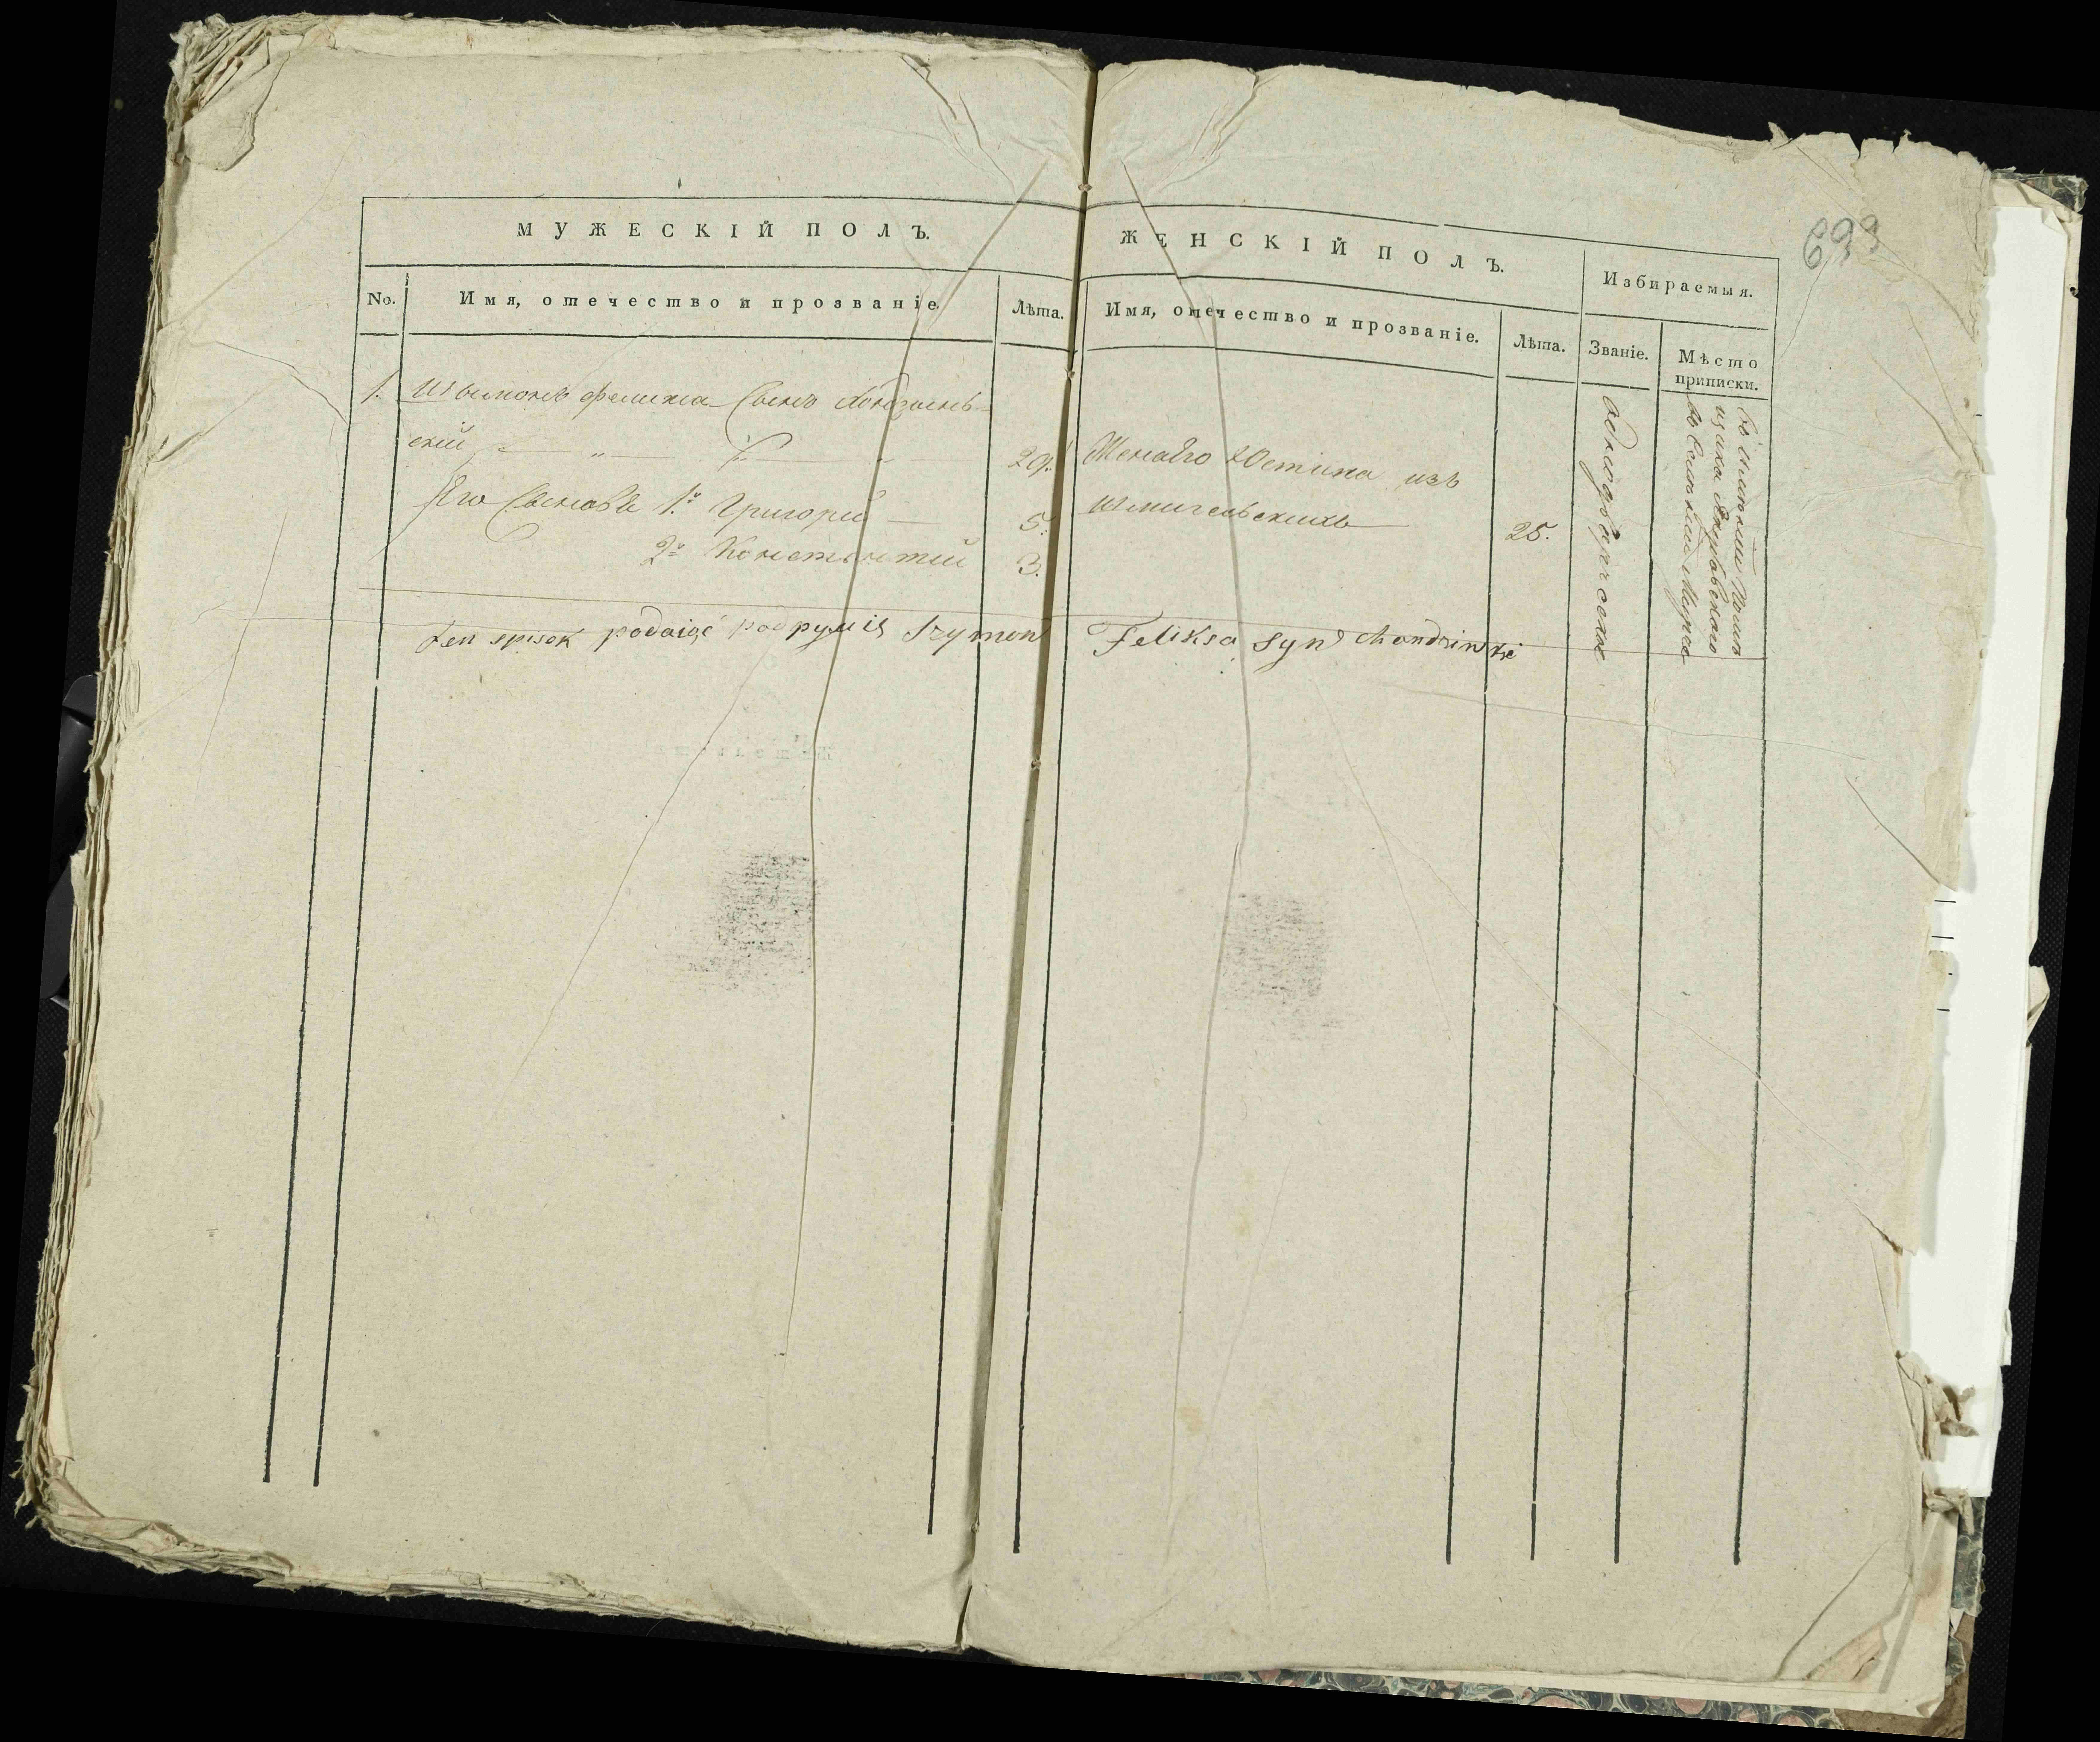 693
МУЖЕСКІЙ ПОЛЪ.
No.
Имя, отечество и прозваніе
Лѣта.
1.
Шымонъ Феликса Сынъ Хондзынь=
скій
29.
Его Сыновья 1º Григорій
5.
2º Константій
3.
ЖЕНСКІЙ ПОЛЪ.
Имя, отечество и прозваніе.
Лѣта.
Жена его Юстина изъ
Шмигельскихъ
25.
Избираемыя.
Званіе.
Мѣсто
приписки.
однодворческое
Ten spisek podaiąc podpysuię Szymon Feliksa syn Chondzinski